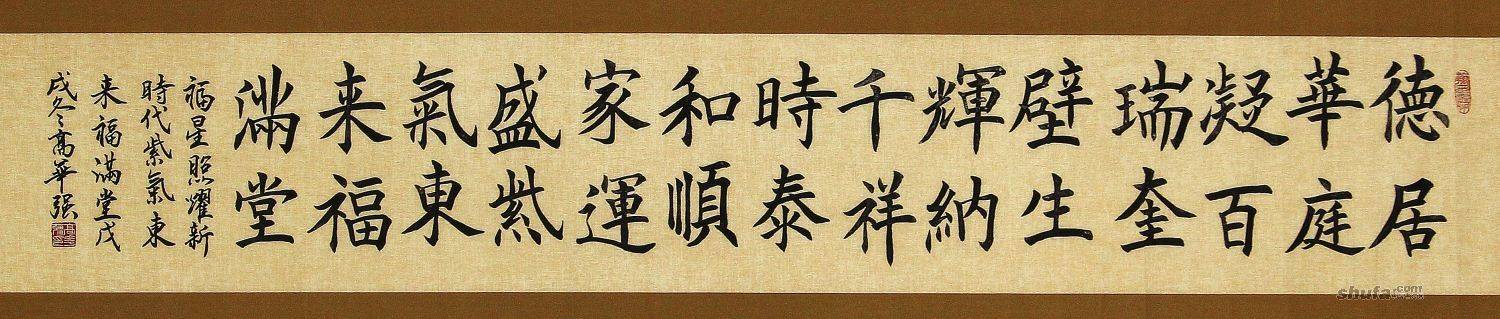 德居
華庭
凝百
瑞奎
壁生
輝納
千祥
時泰
和順
家運
盛紫
氣東
来福
滿堂
福星照耀新
時代紫氣東
来福滿堂戊
戌冬高華强
shufa.com